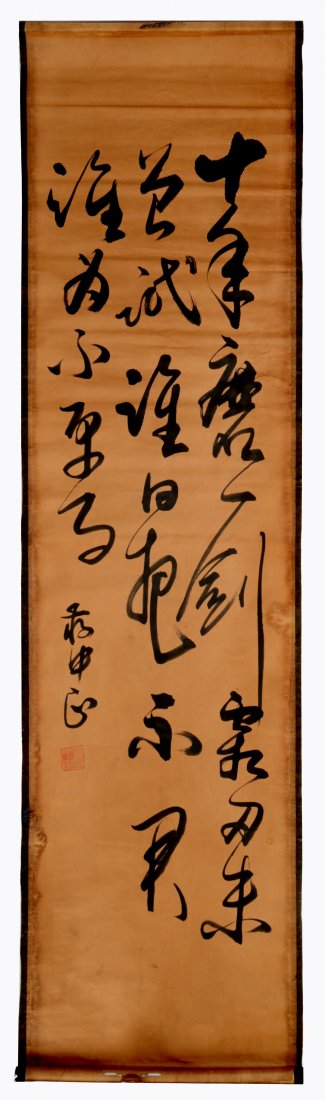 十年磨一劍霜刃未
曾試誰日把示君
誰為不平事
蔣中正